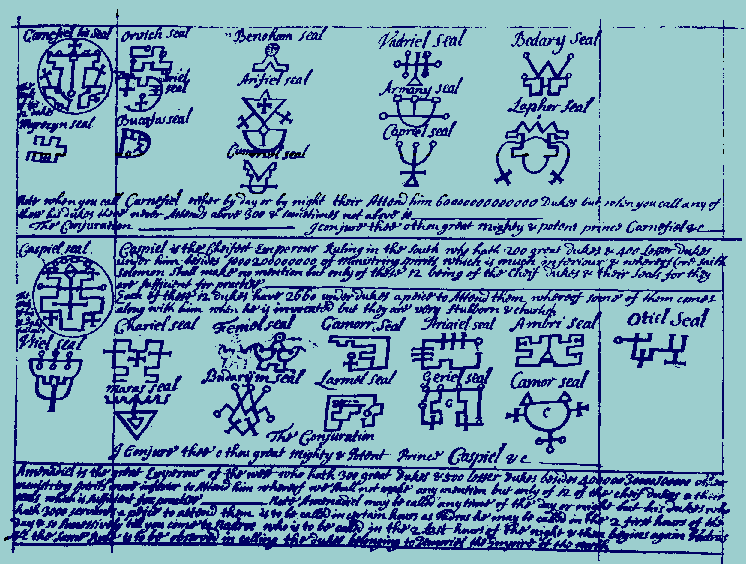 Carnesiel his seal Orvich seal Benoham seal Vadriel Seal Bedary Seal
Arifiel seal Armany seal
Myrezyn seal Bucafas seal Lapher seal
Cumeriel seal Capriel seal
Note when you call Carnesiel either by day or by night their Attend him 60000000000000 Dukes but when you call any of
these his dukes there never Attends above 300 & sometimes not above 10
The Conjuration I conjure thee o thou great mighty & potent prince Carnesiel &c
Caspiel seal Caspiel is the Cheifest Emperour Ruling in the South who hath 200 great dukes & 400 Lesser dukes
under him, besides 1000200000000 of Ministring spirits which is much inferiour &
Solomon Shall make no mention but only of these 12 being of the cheif dukes & their seals for they
are sufficient for practice
Each of these 12 dukes have 2660 under dukes a piece to Attend them, whereof some of them comes
along with him when he is invocated but they are very Stubborn & churlish
Ursiel seal Chariel seal Femol seal Camory Seal Ariaiel seal Ambri Seal Otiel Seal
Maras seal Budarym seal Larmol Seal Geriel seal Camor seal
The Conjuration
I Conjure thee o thou great Mighty & Potent Prince Caspiel &c
Amenadiel is the great Emperour of the west who hath 300 great dukes & 500 lesser dukes besides
ministring spirits more inferior to Attend him whereof we shall not make any mention but only of 12 of the cheif dukes & their
seals which is sufficient for practice Note Amenadiel may be called any time of the day or night but his dukes who
hath 3000 servants a piece to attend them is to be called in certain hours as Vadros he may be called in the 2 first hours of the
day & so sucessively till you come to Nadroc who is to be called in the 2 last hours of the night & then begins again Vadros
the same Rule is to be observed in calling the dukes belonging to Demoriel the Empire of the north